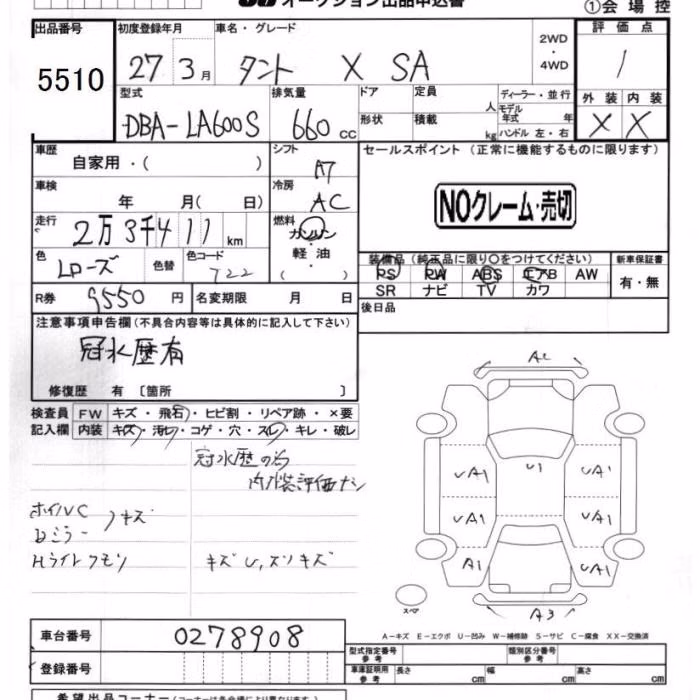 オークション出品申込書
①会場控
出品番号 初度登録年月 車名・グレード 2WD・4WD 評価点
5510 27年3月 タント X SA 1
型式 排気量 ドア 定員 人 ディーラー・並行
DBA-LA600S 660cc モデル年式 年 外装 内装
形状 積載 kg ハンドル 左・右 X X
車歴 自家用・( ) シフト A7 セールスポイント (正常に機能するものに限ります)
車検 年 月( 日) 冷房 AC NOクレーム・売切
走行 2万3千411km 燃料 ガソリン・軽油・( )
色 LPローズ 色替 色コード T22 装備品 (純正品に限り○をつけてください) 新車保証書
PS PW ABS エアB AW 有・無
SR ナビ TV カワ
R券 9550円 名変期限 月 日 後日品
注意事項申告欄(不具合内容等は具体的に記入して下さい)
冠水歴有
修復歴 有 〔箇所 〕
検査員 FW キズ・飛石・ヒビ割・リペア跡・×要
記入欄 内装 キズ・汚レ・コゲ・穴・スレ・キレ・破レ
冠水歴の為
内外装評価ナシ
ホイルVC
Dミラー キズ
Hライトクモリ キズU,スリキズ
A2
UA1 U1 UA1
UA1 UA1
A1 A1
スペア A3
A-キズ E-エクボ U-凹み W-補修跡 S-サビ C-腐食 XX-交換済
車台番号 0278908
型式指定番号 参考 類別区分番号 参考
登録番号 車庫証明用 参考 長さ cm 幅 cm 高さ cm
希望出品コーナー